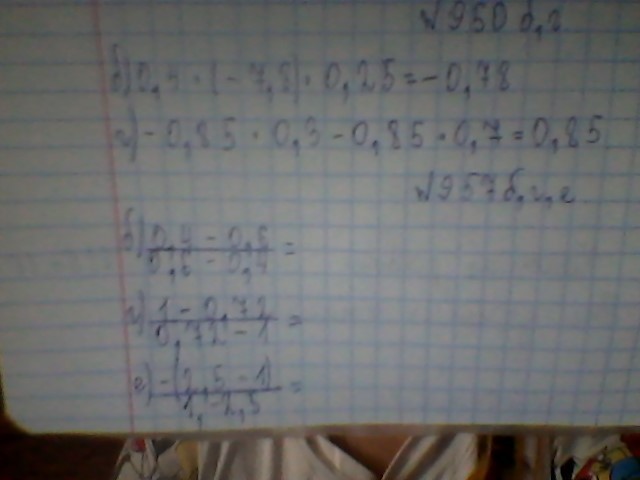 № 950 б, г
б) 0,4 · (-7,8) · 0,25 = -0,78
г) -0,85 · 0,3 - 0,85 · 0,7 = 0,85
№ 957 б, г, е
б) 0,4 - 0,6 =
0,6 - 0,4
г) 1 - 0,72 =
0,72 - 1
е) -(2,5 - 1) =
1, - 2,5